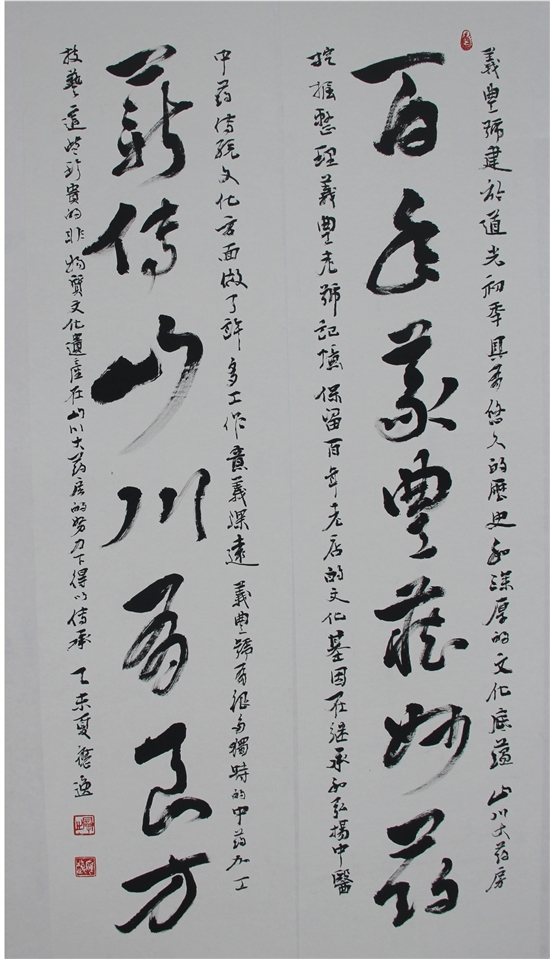 義豐號建於道光初年具有悠久的歷史和深厚的文化底蘊 山川大药房
百年義豐藏妙药
挖掘整理義豐老號記憶 保留百年老店的文化基因在継承和弘揚中醫
中药傳統文化方面做了許多工作意義深遠 義豐號有很多獨特的中药加工
薪傳山川有良方
技藝 這些珍貴的非物質文化遺產在山川大药房的努力下得以传承 乙未夏